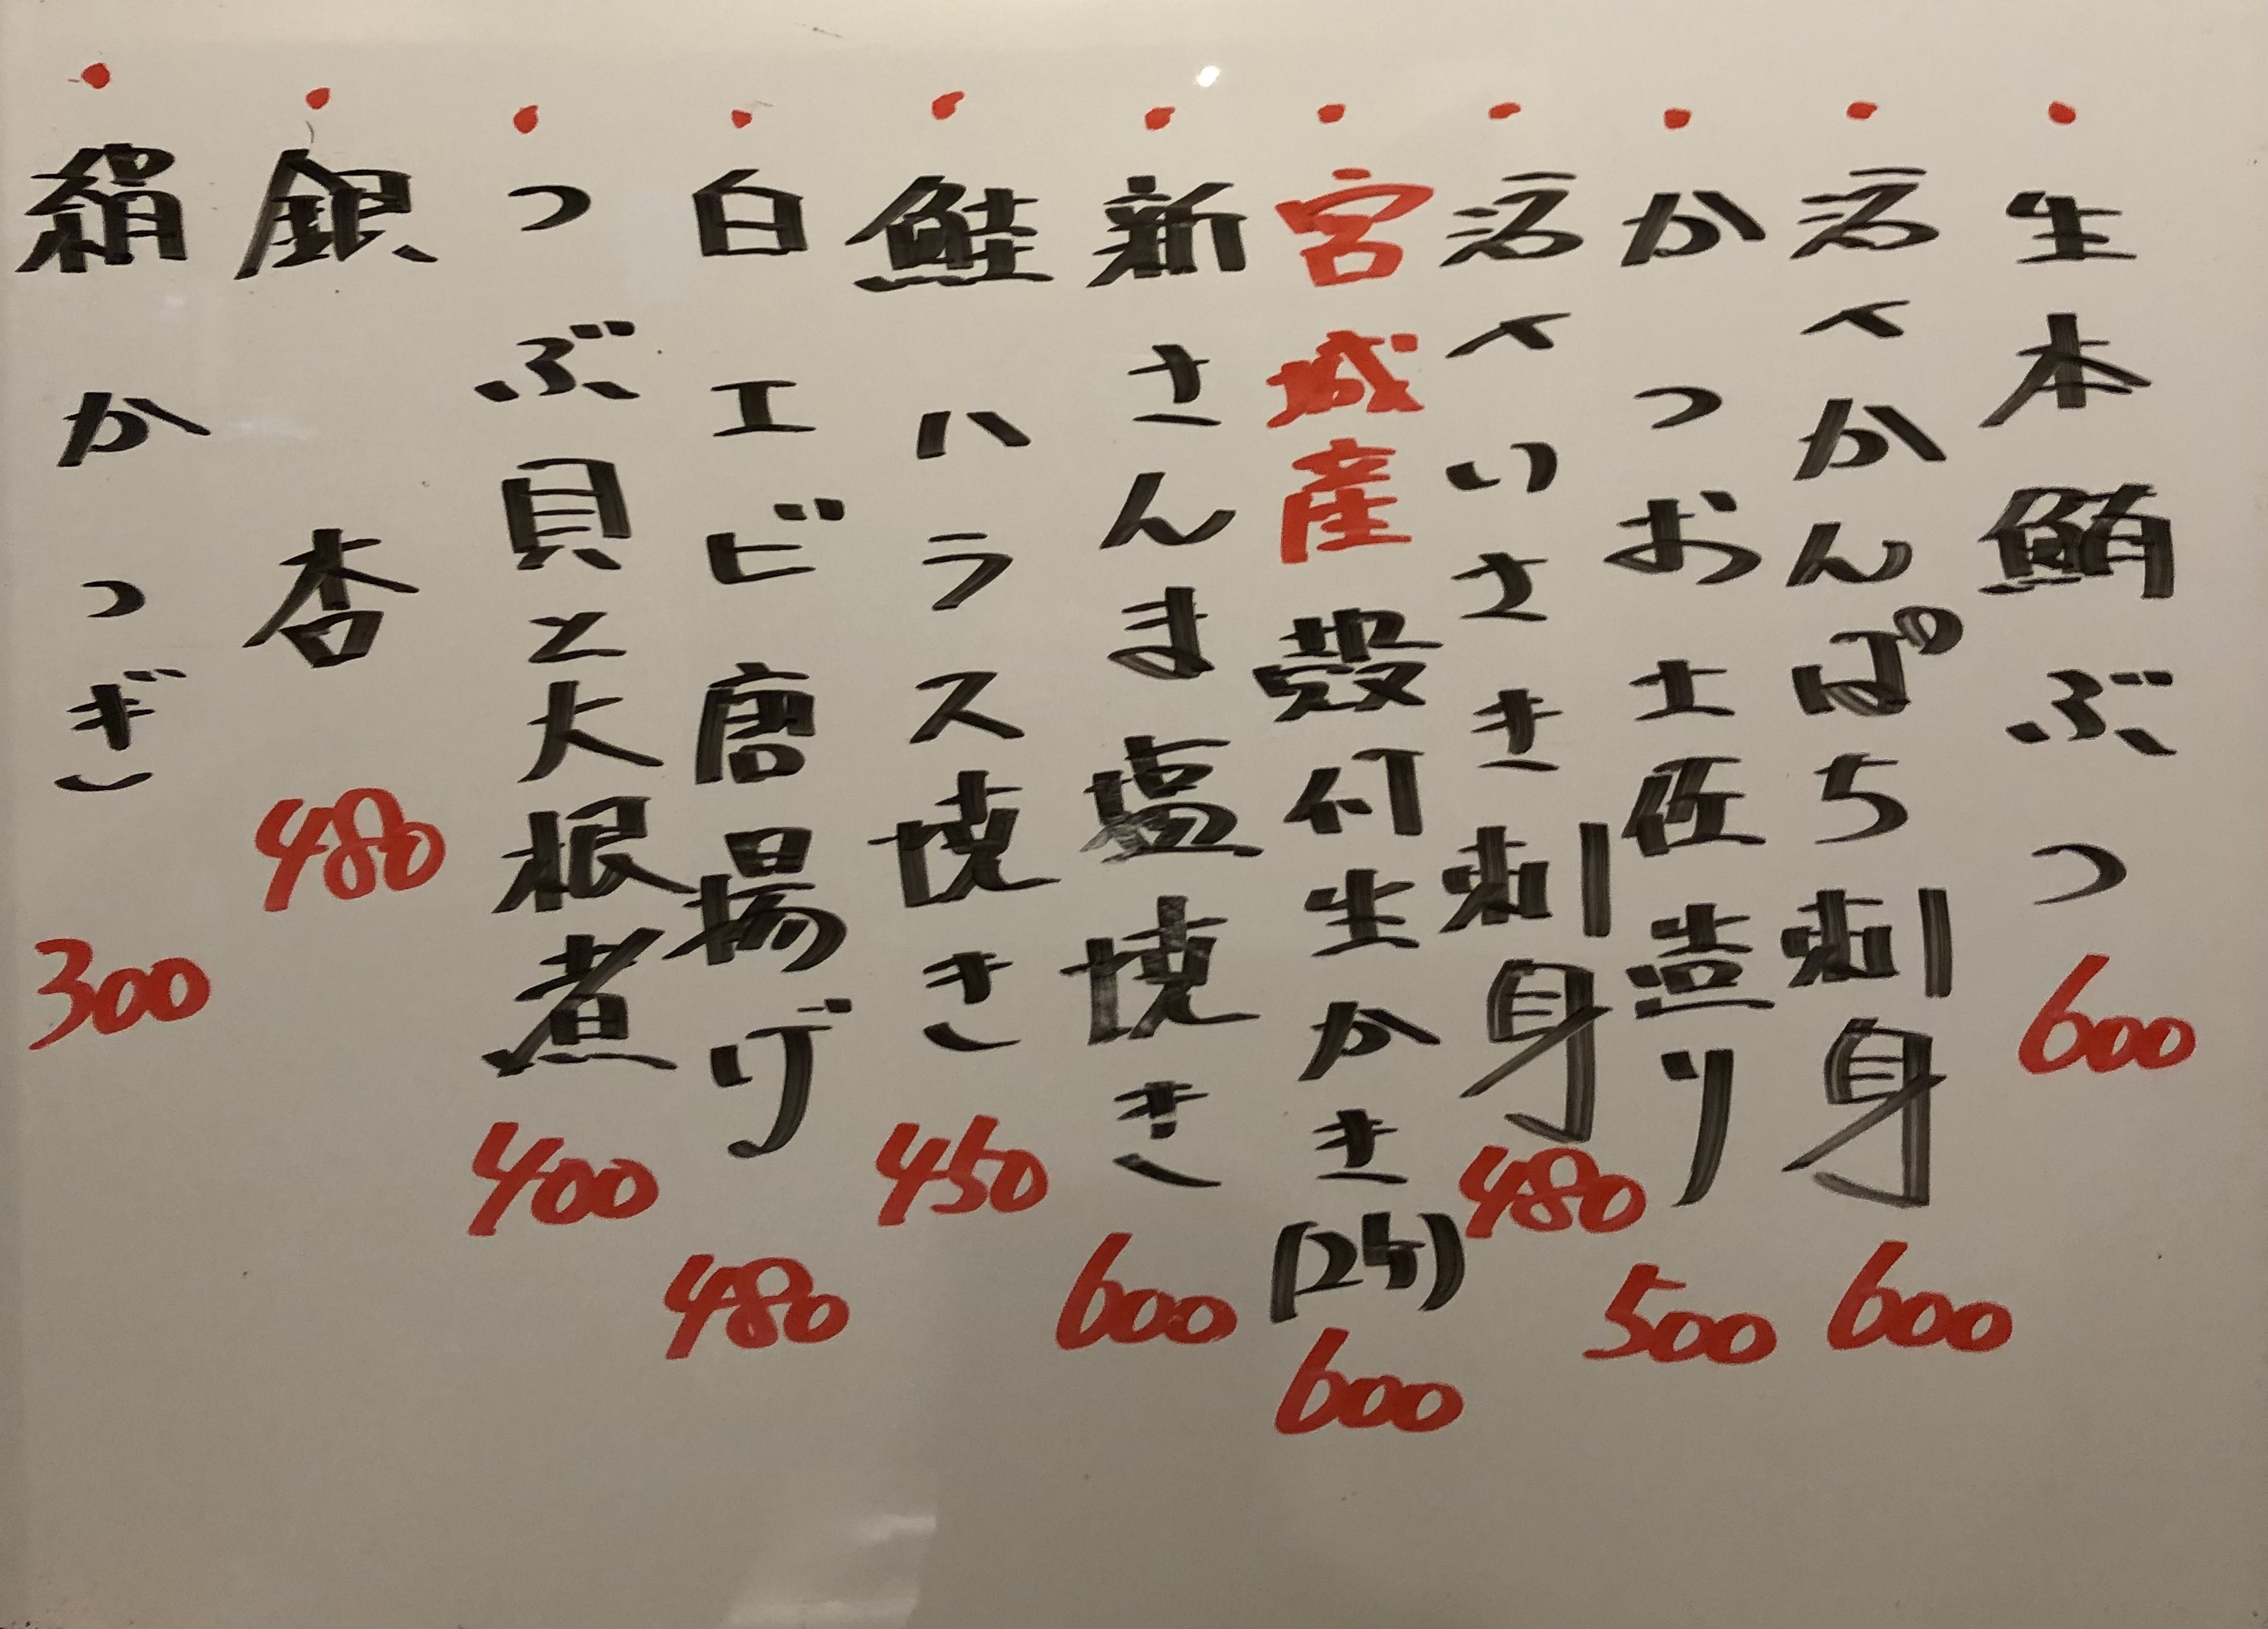 ・生本鮪ぶつ 600
・活〆かんぱち刺身 600
・かつお土佐造り 500
・活〆いさき刺身 480
・宮城産殻付生かき(2ケ) 600
・新さんま塩焼き 600
・鮭ハラス焼き 450
・白エビ唐揚げ 480
・つぶ貝と大根煮 400
・銀杏 480
・絹かつぎ 300